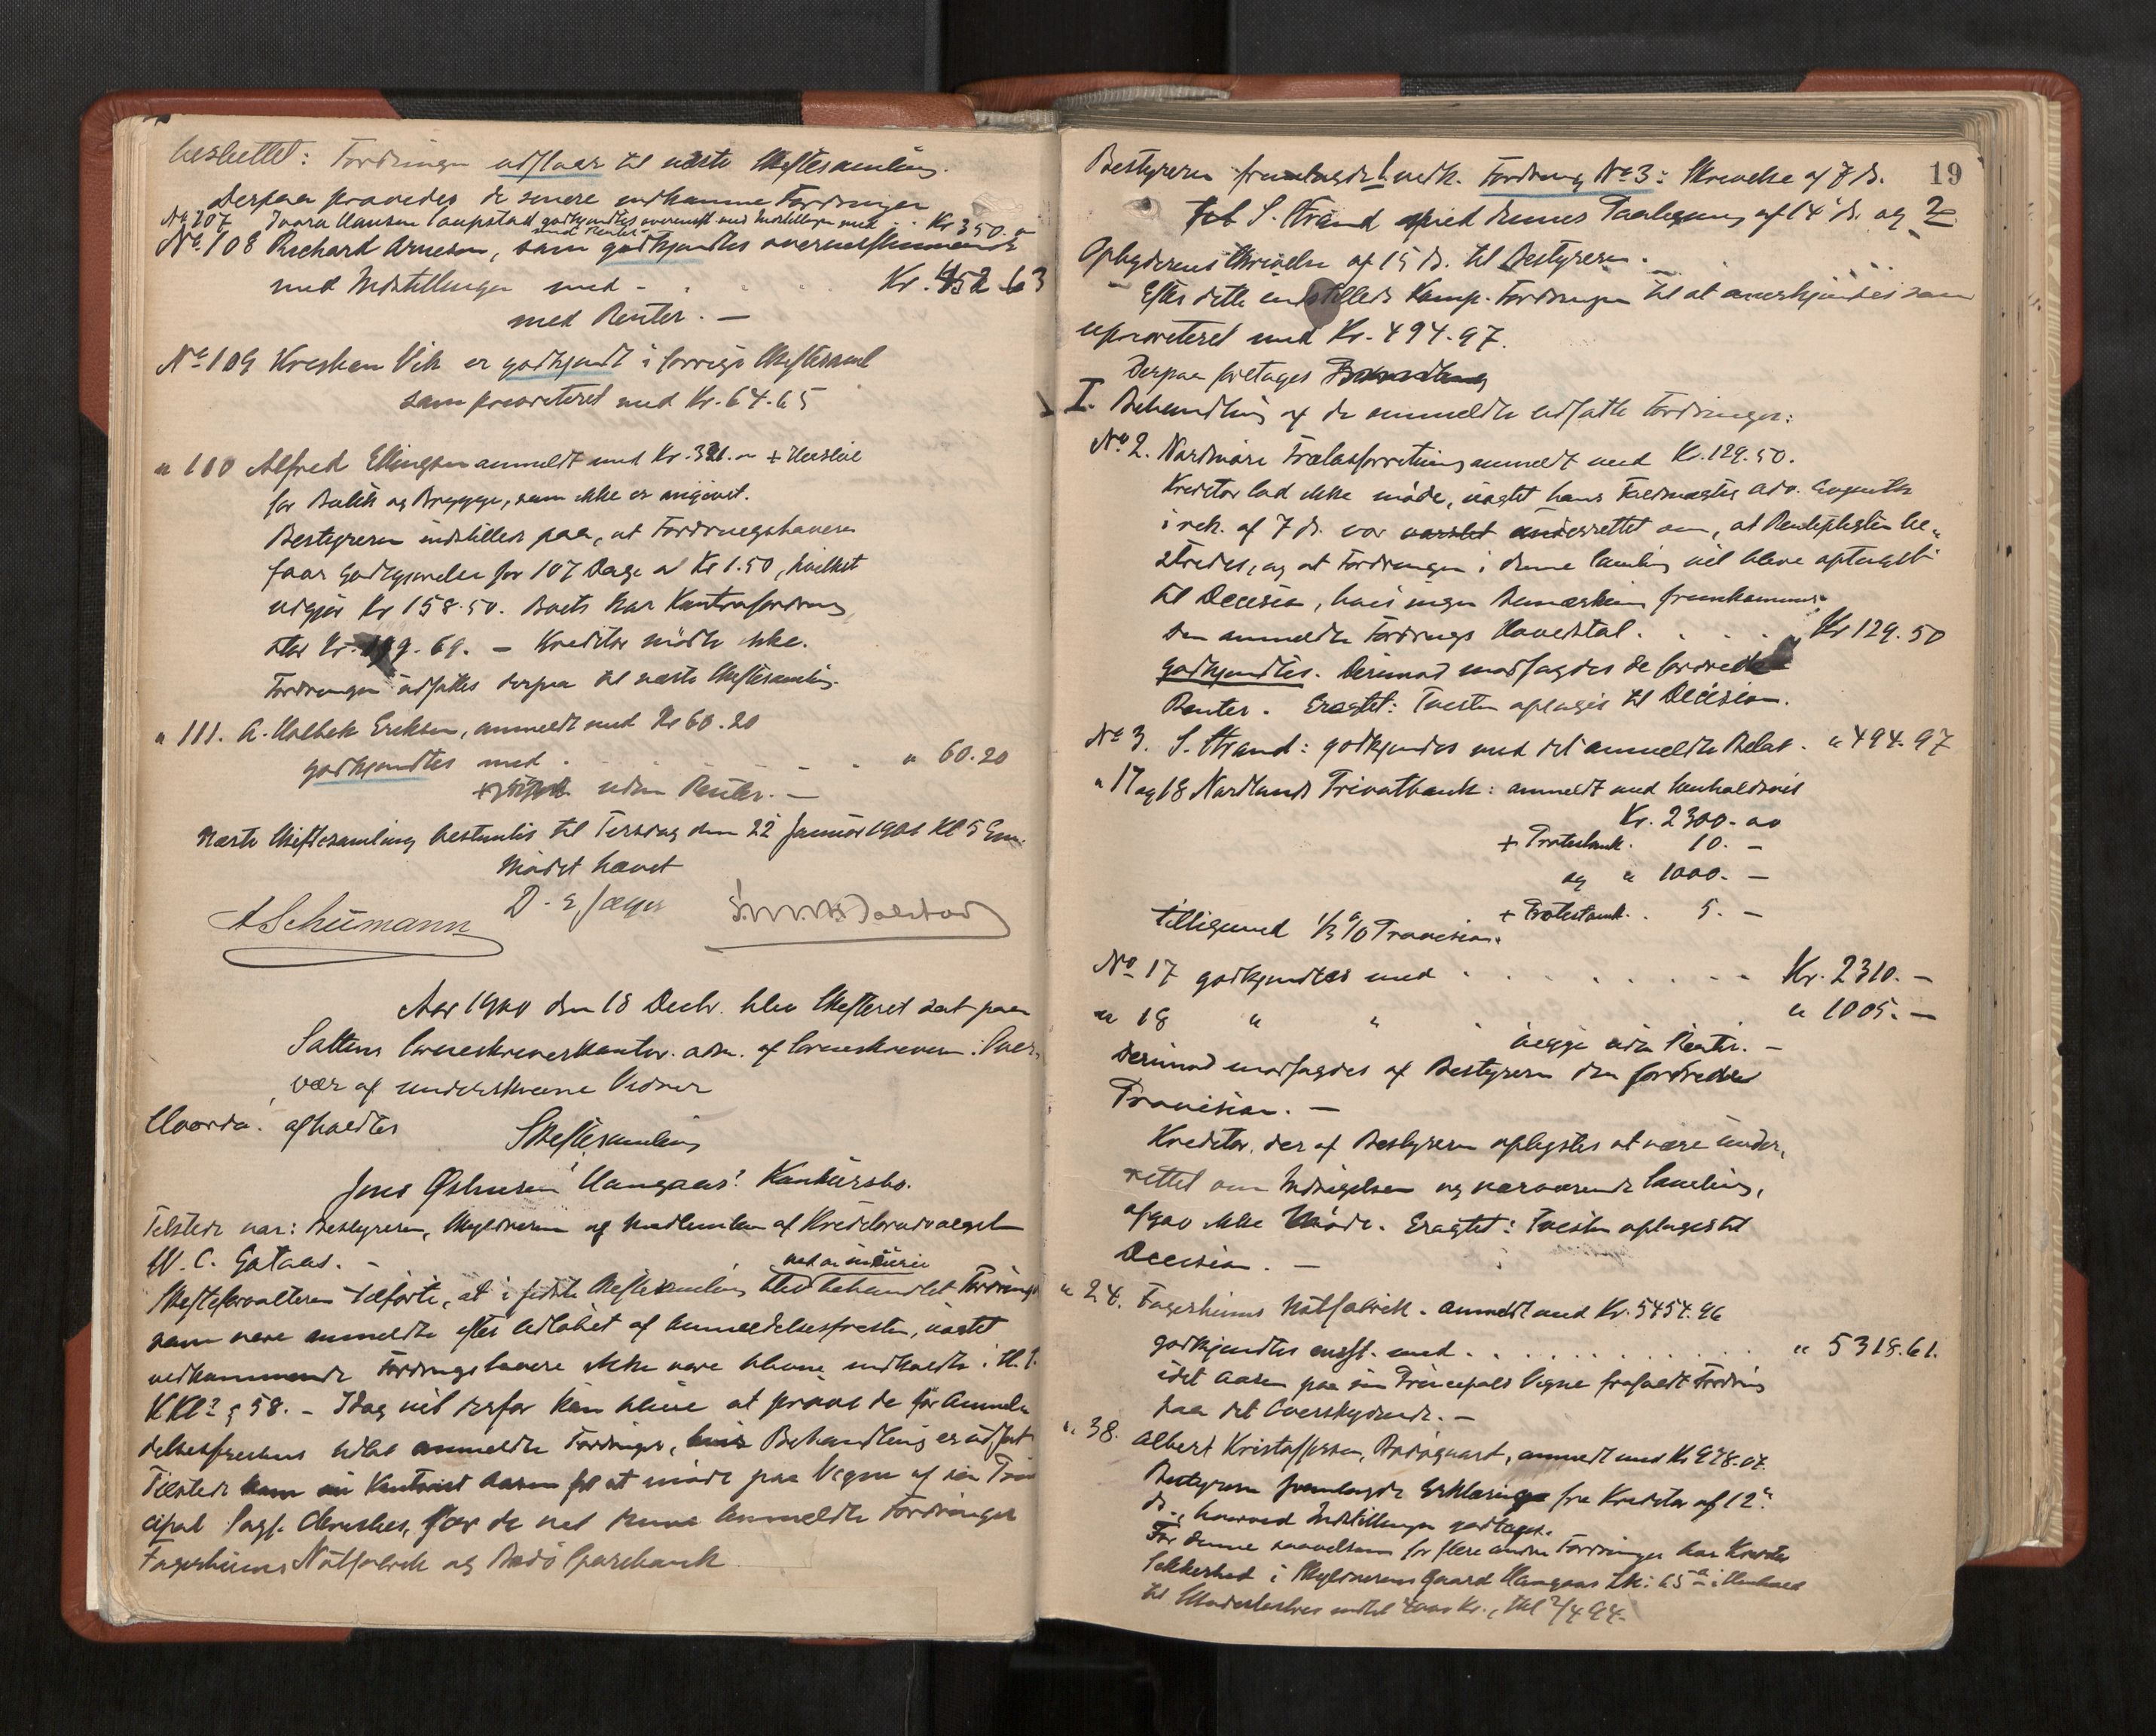 besluttet: Fordringen udstaar til næste Skiftesamling.
Derpaa prøvedes de senere indkomne Fordringer
No 107 Ivara Hansen godkjendtes overenst med Indstillingen med . . Kr 350. "
med Renter
No 108 Richard Arnesen, som godkjendtes overensstemmende
med Indstillingen med - . . . Kr. 452.63
med Renter. —
No 109 Kresten Vik er godkjendt i forrige Skiftesaml
som prioriteret med Kr. 64.65
" 110 Alfred Ellingsen anmeldt med Kr. 321. " + Husleie
for Butik og Brygge, som ikke er angivet.
Bestyreren indstilles paa, at Fordringshaveren
faar Godtgjørelse for 107 Dage a Kr 1.50, hvilket
udgjør Kr 158.50. Boets har Kontrafordring
stor Kr. 199.69. — Kreditor mødte ikke.
Fordringen udsattes derpaa til næste Skiftesamling.
" 111. A. Holbek Eriksen, anmeldt med Kr 60.20
godkjendtes med . . . . " 60.20
uden Renter. —
Næste Skiftesamling bestemtes til Tirsdag den 22 Januar 1901 Kl 5 Em.
Mødet hævet
A Schümann D. E Jæger
Aar 1900 den 18 Decbr. blev Skifteret sat paa
Saltens Sorenskriverkontor. adm. af Sorenskriveren. Over-
vær af underskrevne Vidner
Hvorda: afholdtes Skiftesamling
i
Jens Øsmesen Haugaas' Konkursbo.
Tilstede var: Bestyreren, Skyldneren og Medlemmen af Kreditorudvalget
W. C. Gotaas. —
ved en incurie
Skifteforvalteren tilførte, at i sidste Skiftesamling blev behandlet Fordringer
som vare anmeldte efter Udløbet af Anmeldelsesfristen, uagtet
vedkommende Fordringshavere ikke vare blevne indkaldte i H. t.
KKl § 58. — Idag vil derfor kun blive at prøve de før Anmel-
delsesfristens Udløb anmeldte Fordringer, hvis Behandling er udsat
Tilstede kom nu Kontorist Aasen for at møde paa Vegne af sin Prin
cipal Sagf. Christies, for de ved denne anmeldte Fordringer
Fagerheims Notfabrik og Bodø Sparebank
19
Bestyreren fremlagde vedk. Fordring No 3: Skrivelse af 7 ds.
fra S. Strand med dennes Paategning af 14 ds. og
Opbyderens Skrivelse af 15 ds. til Bestyreren.
Efter dette indstilledes Komp. Fordringen til at anerkjendes som
uprioriteret med Kr. 494.97.
Derpaa foretages Behandling
I. Behandling af de anmeldte udsatte Fordringer:
No 2. Nordmøre Trælastforretning anmeldt med Kr. 129.50.
Kreditor lod ikke møde, uagtet hans Fuldmægtig Adv. Augustin
i rek. af 7 ds. var varslet underrettet om, at Rentepligten be-
strides, og at Fordringen i denne Samling vil blive optaget
til Decision, hvis ingen Bemærkning fremkommer.
Den anmeldte Fordrings Hovedstol. . . . . Kr 129.50
godkjendtes. Derimod modsagdes de fordrede
Renter. Eragtet: Tvisten optages til Decision.
No 3. S. Strand: godkjendes med det anmeldte Beløb. " 494.97
" 17 og 18 Nordlands Privatbank: anmeldt med henholdsvis
Kr. 2300.00
+ Protestomk. 10. —
og " 1000. —
+ Protestomk. . 5. —
tilligemed 1/3 % Provision.
No 17 godkjendtes med . . . . . . . Kr. 2310. —
" 18 " " . " 1005. —
begge uden Renter. —
Derimod modsagdes af Bestyreren den fordrede
Provision. —
Kreditor, der af Bestyreren oplystes at være under-
rettet om Indsigelsen og nærværende Samling,
afgav ikke Møde. Eragtet: Tvisten optages til
Decision. —
" 24. Fagerheims Notfabrik. anmeldt med Kr. 5454.96
godkjendtes med. . . . . . . . " 5318.61.
idet Aasen paa sin Principals Vegne frafaldt Fordring
paa det Overskydende. —
" 38. Albert Kristoffersen, anmeldt med Kr 978.07.
Bestyreren fremlagde Erklæring fra Kreditor af 12"
ds., hvorved Indstillingen vedtages.
For denne saavelsom for flere andre Fordringer har Kreditor
Sikkerhed i Skyldnerens Gaard Haugaas Lk: 65 a i Henhold
til Skadesløsbrev indtil 4000 Kr., thl 2/4 94.